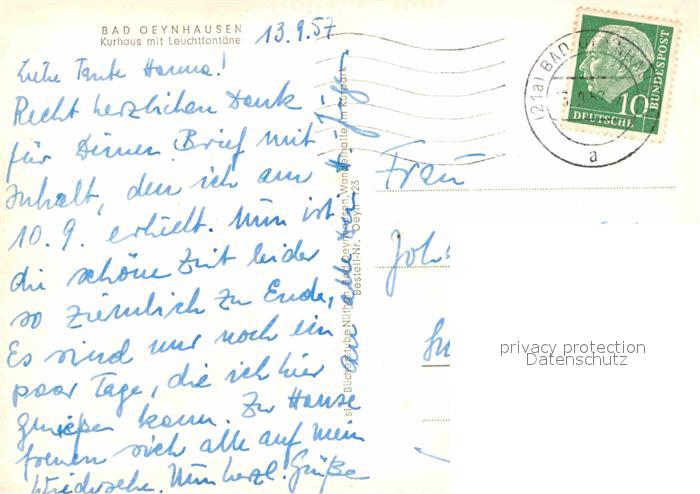 BAD OEYNHAUSEN
Kurhaus mit Leuchtfontäne
13.9.57
Liebe Tante Hanna!
Recht herzlichen Dank
für Deinen Brief mit
Inhalt, den ich am
10.9. erhielt. Nun ist
die schöne Zeit leider
so ziemlich zu Ende,
Es sind nur noch ein
paar Tage, die ich hier
genießen kann. Zu Hause
freuen sich alle auf mein
Wiedersehn. Nun herzl. Grüße
an alle
Bücherstube Bad Oeynhausen, Wandelhalle im Kurpark
Bestell-Nr. Oeyn 23
(21a) BAD OEYNHAUSEN
a
10
DEUTSCHE
BUNDESPOST
Frau
Joh
privacy protection
Datenschutz